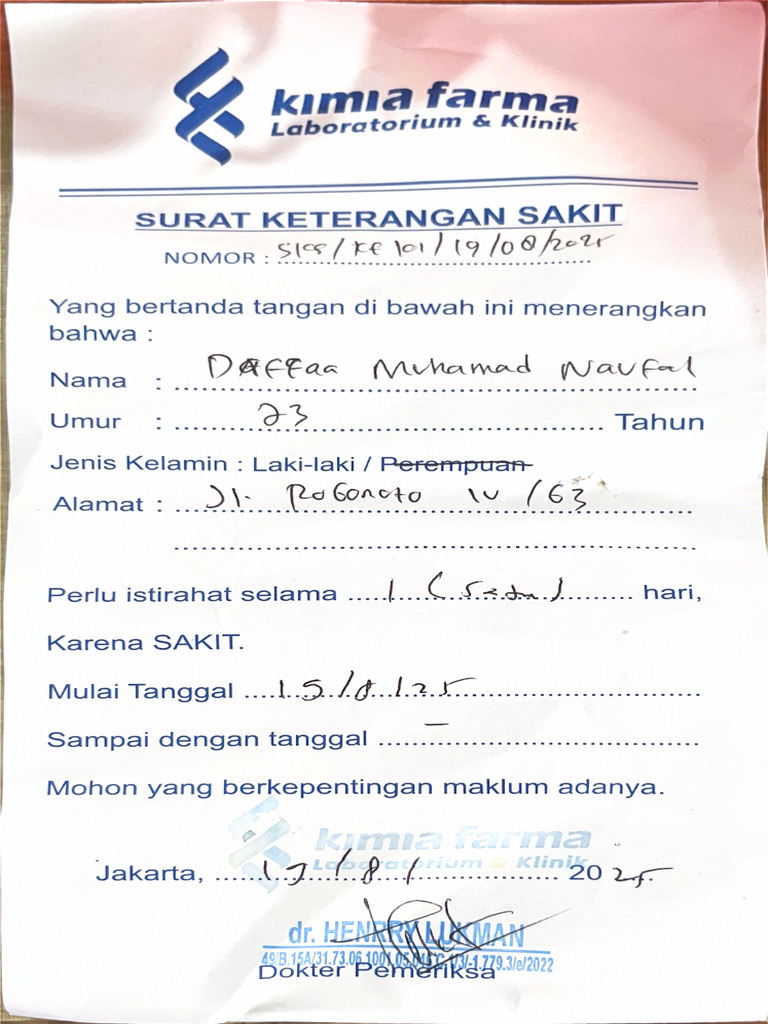 kimia farma
Laboratorium & Klinik
SURAT KETERANGAN SAKIT
NOMOR : /19/08/2025
Yang bertanda tangan di bawah ini menerangkan
bahwa :
Nama : Daffaa Muhamad Naufal
Umur : 23 Tahun
Jenis Kelamin : Laki-laki / Perempuan
Alamat : Jl. Rogonoto IV /63
Perlu istirahat selama 1 (Satu) hari,
Karena SAKIT.
Mulai Tanggal 15/8/25
Sampai dengan tanggal –
Mohon yang berkepentingan maklum adanya.
kimia farma
Laboratorium & Klinik
Jakarta, /8/ 2025
dr. HENRRY LUKMAN
49/B.15A/31.73.06.1001.05.
Dokter Pemeriksa